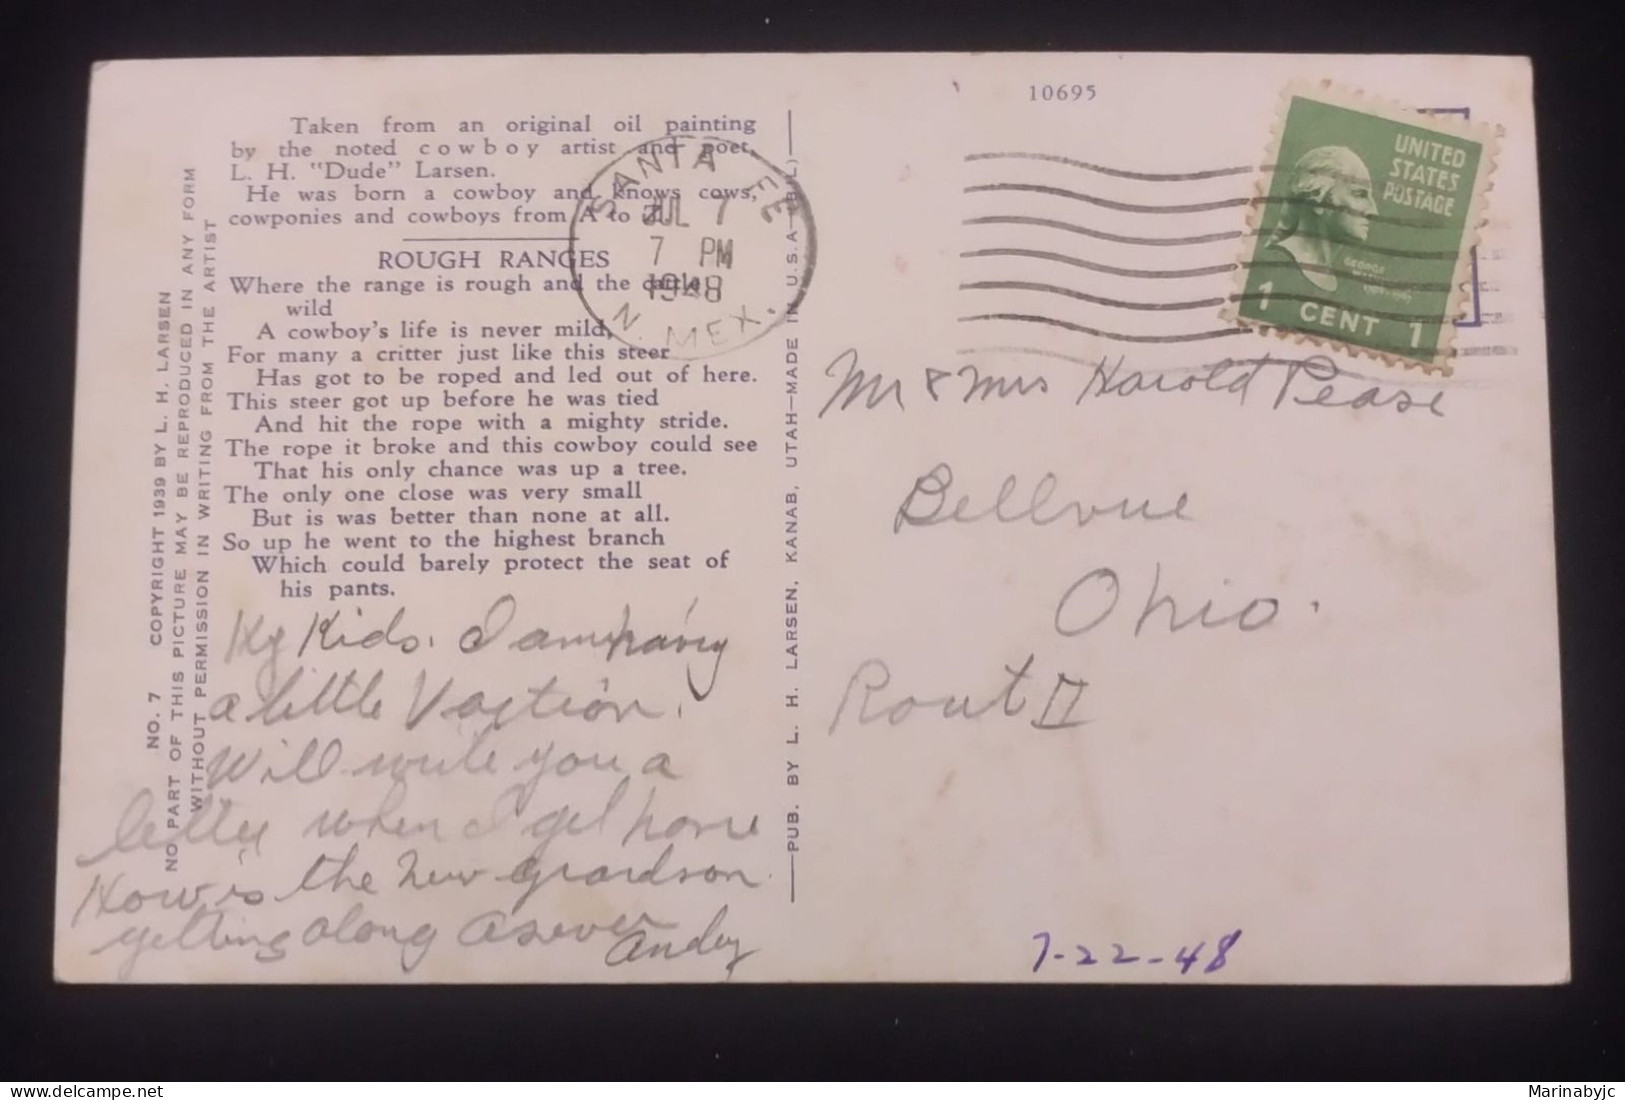 10695
Taken from an original oil painting
by the noted cowboy artist and poet,
L. H. "Dude" Larsen.
He was born a cowboy and knows cows,
cowponies and cowboys from A to Z.
ROUGH RANGES
Where the range is rough and the cattle
wild
A cowboy's life is never mild,
For many a critter just like this steer
Has got to be roped and led out of here.
This steer got up before he was tied
And hit the rope with a mighty stride.
The rope it broke and this cowboy could see
That his only chance was up a tree.
The only one close was very small
But is was better than none at all.
So up he went to the highest branch
Which could barely protect the seat of
his pants.
Hy Kids. I am having
a little Vaction.
Will write you a
letter when I get home
How is the new grandson
getting along as ever
Andy
NO. 7 COPYRIGHT 1939 BY L. H. LARSEN
NO PART OF THIS PICTURE MAY BE REPRODUCED IN ANY FORM
WITHOUT PERMISSION IN WRITING FROM THE ARTIST
PUB. BY L. H. LARSEN, KANAB, UTAH—MADE IN U.S.A.
SANTA FE
JUL 7
7 PM
1948
N. MEX.
UNITED
STATES
POSTAGE
GEORGE
WASHINGTON
1 CENT 1
Mr & Mrs Harold Pease
Bellvue
Ohio.
Rout II
7-22-48
Marinabyjc